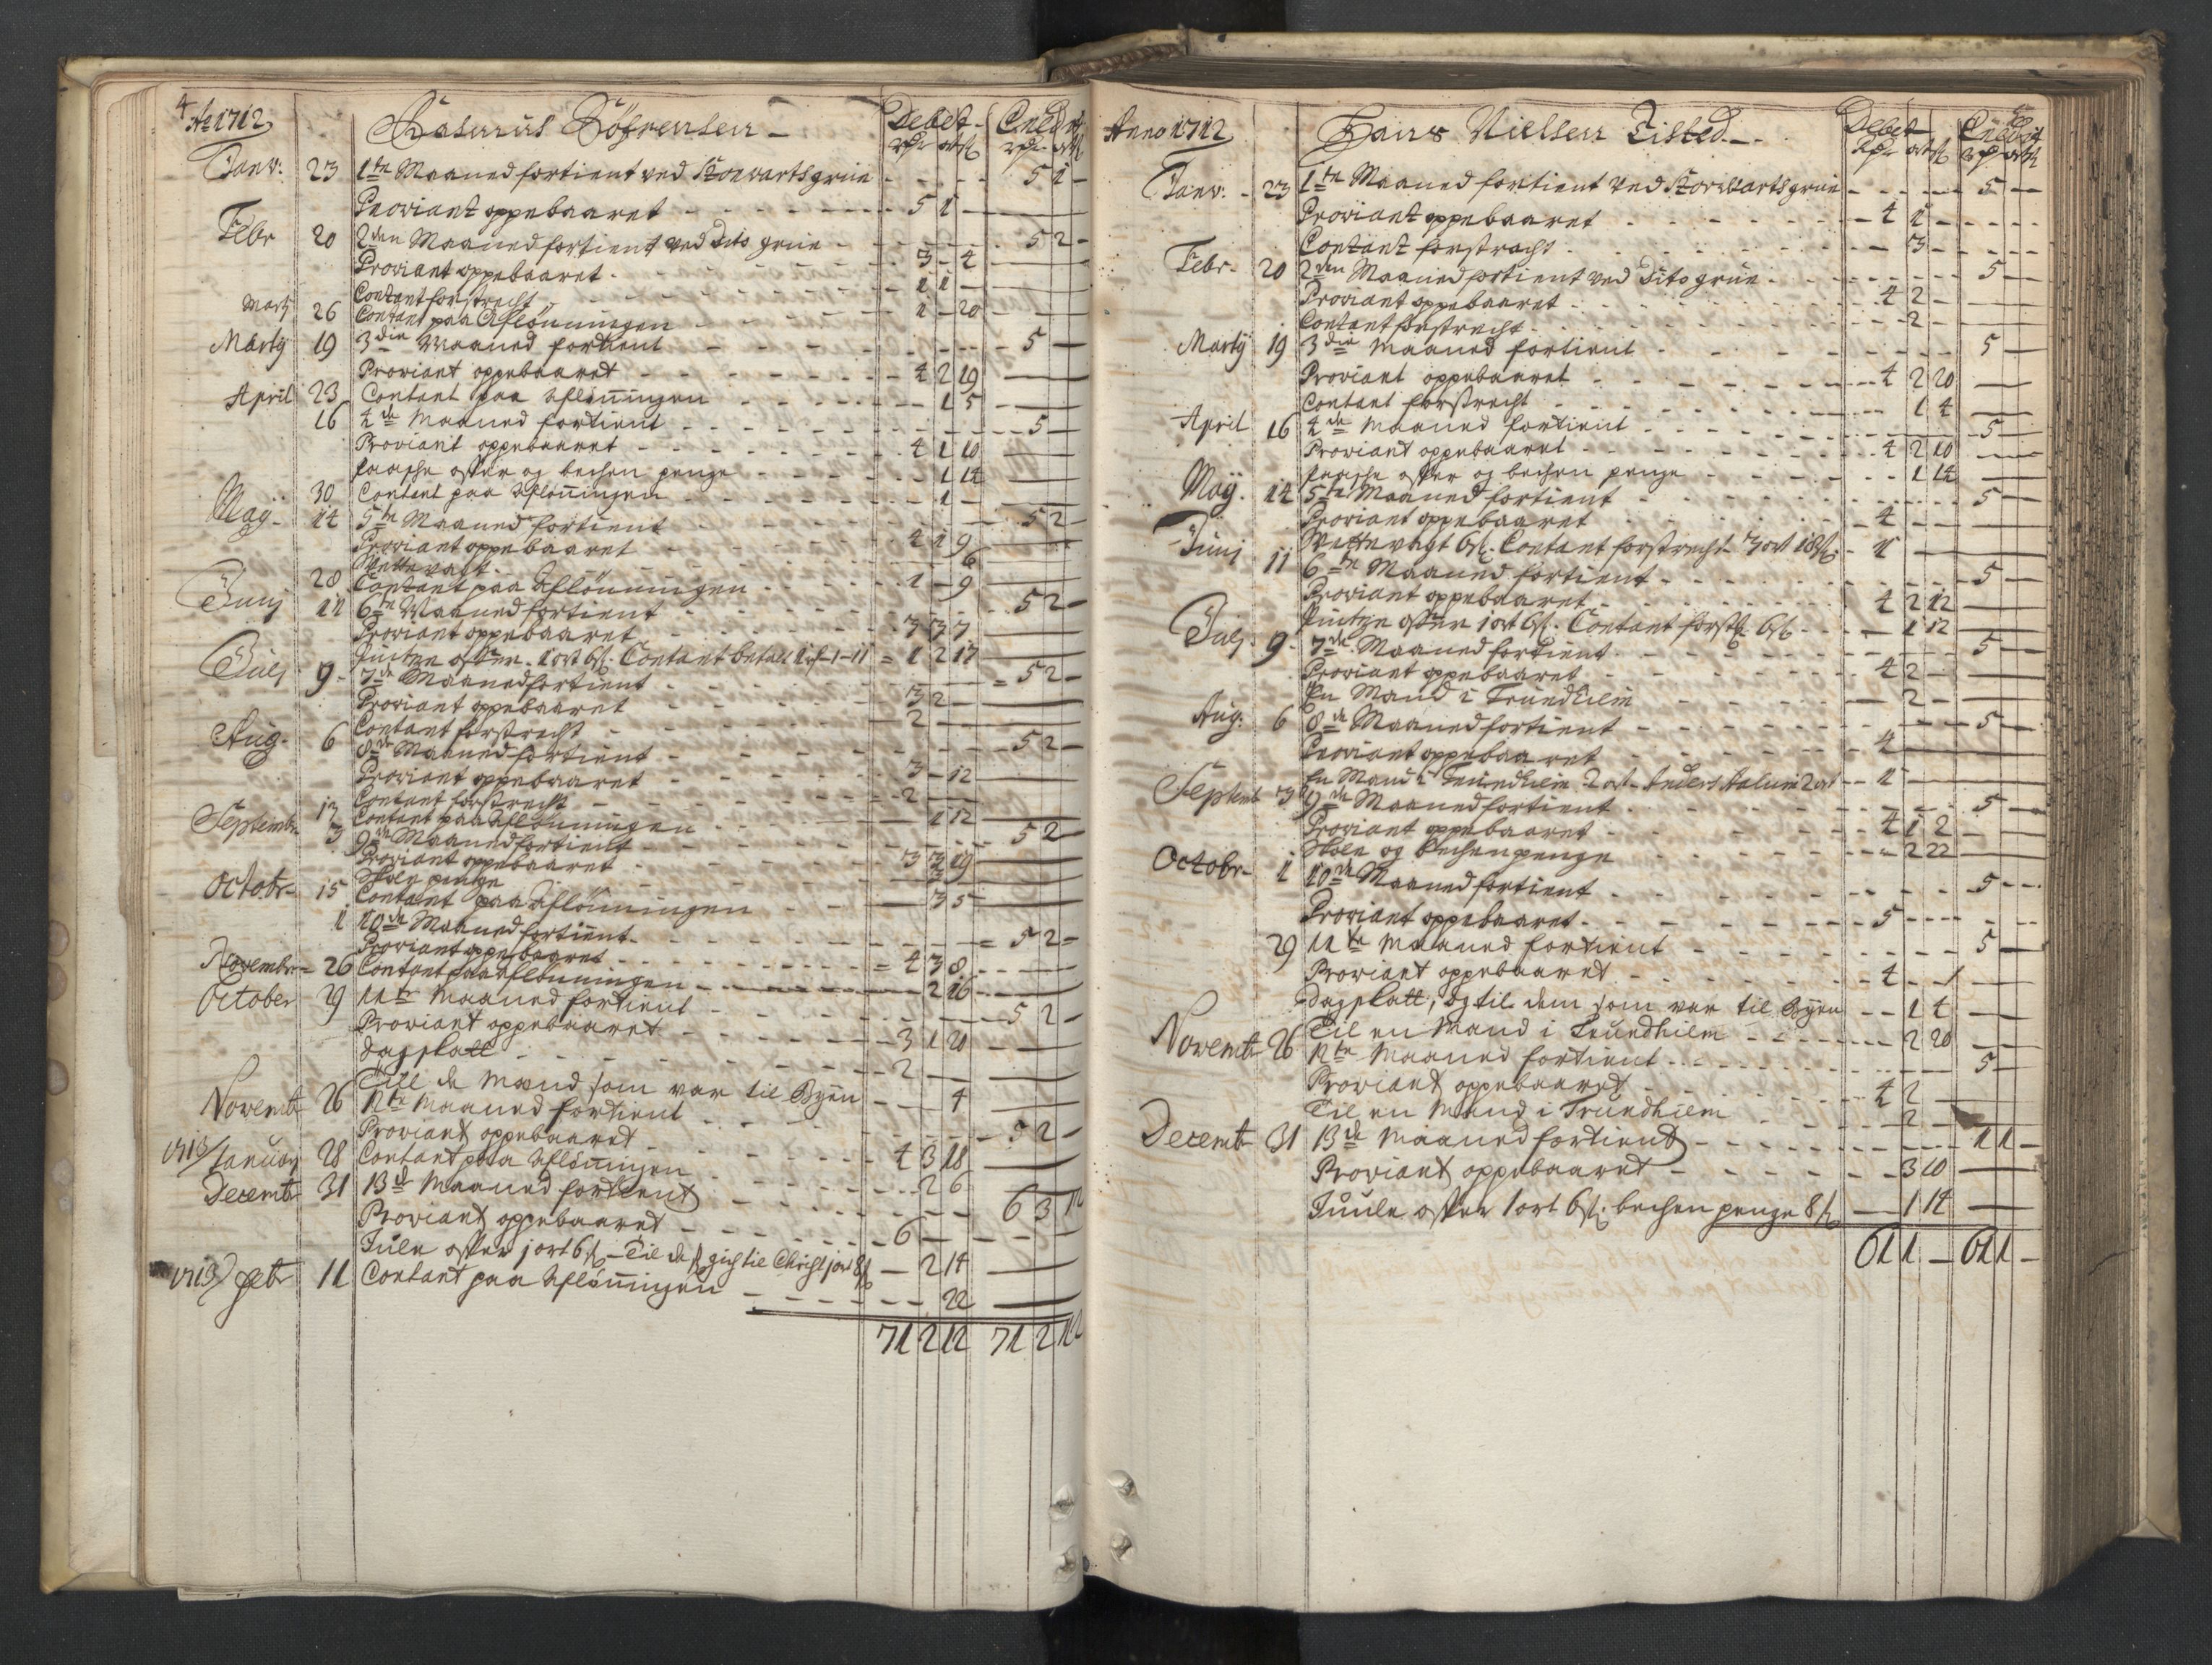 4
Ao 1712 Rasmus Söfrensen Debet Credit
rdr ort ß rdr ort ß
Janv: 23 1te Maaned fortient ved Storvarts grue 5 1 -
Proviant oppebaaret 5 1 -
Febr 20 2den Maaned fortient ved dito grue 5 2 -
Proviant oppebaaret 3 - 4
Contant forstracht 1 1 -
Martj 26 Contant paa Aflönningen 1 - 20
Martij 19 3die Maaned fortient 5 -
Proviant oppebaaret 4 2 19
April 23 Contant paa Aflönningen 1 5
16 4de Maaned fortient 5 -
Proviant oppebaaret 4 1 10
Paasche offer og bechen penge 1 14
30 Contant paa Aflönningen 1 -
Maij 14 5te Maaned fortient 5 2 -
Proviant oppebaaret 4 1 9
Wettevagt 6
28 Contant paa Aflönningen 1 - 9
Junj 11 6te Maaned fortient 5 2 -
Proviant oppebaaret 3 3 7
Pintze offer 1 ort 6 ß. Contant betalt 1 rdr - 1 - 11 1 2 17
Julj 9 7de Maaned fortient 5 2 -
Proviant oppebaaret 3 2 -
Contant forstracht 2 -
Aug. 6 8de Maaned fortient 5 2 -
Proviant oppebaaret 3 - 12
Contant forstracht 2 -
17 Contant paa Aflönningen 1 12
Septemb: 3 9de Maaned fortient 5 2 -
Proviant oppebaaret 3 3 19
Skole penge
Octobr 15 Contant paa Aflönningen 3 5
1 10de Maaned fortient 5 2 -
Proviant oppebaaret 4 3 8
Novembr 26 Contant paa Aflönningen 2 16
October 29 11te Maaned fortient 5 2 -
Proviant oppebaaret 3 1 20
Dagskatt 2 -
Till de Mænd som var til Byen 4
Novembr 26 12te Maaned fortient 5 2 -
Proviant oppebaaret 4 3 18
1713/ Januarj 28 Contant paa Aflönningen 2 6
Decembr 31 13de Maaned fortient 6 3 12
Proviant oppebaaret 6 -
Jule offer 1 ort 6 ß - Til de gich til Christ 1 ort 8 ß 2 14
1713/ febr 11 Contant paa Aflönningen 22
71 2 12 71 2 12
Anno 1712 Hans Nielsen Tisted Debet Credit
rdr ort ß rdr ort ß
Janv: 23 1te Maaned fortient ved Storvarts grue 5 -
Proviant oppebaaret 4 1 -
Contant forstracht 3 -
Febr. 20 2den Maaned fortient ved dito grue 5 -
Proviant oppebaaret 4 2 -
Contant forstracht 2 -
Martij 19 3die Maaned fortient 5 -
Proviant oppebaaret 4 2 20
Contant forstracht 1 4
April 16 4de Maaned fortient 5 -
Proviant oppebaaret 4 2 10
Paasche offer og bechen penge 1 14
Maij. 14 5te Maaned fortient 5 -
Proviant oppebaaret 4 - -
Wettevagt 6 ß. Contant forstracht 3 ort 18 ß. 1 -
Junj 11 6te Maaned fortient 5 -
Proviant oppebaaret 4 2 12
Pintze offer 1 ort 6 ß. Contant forst: 6 ß 1 12
Julj 9 7de Maaned fortient 5 -
Proviant oppebaaret 4 2 -
En Mand i Trundhiem 2 -
Aug: 6 8de Maaned fortient 5 -
Proviant oppebaaret 4
En Mand i Trundhiem 2 ort - Anders Aalum 2 ort 1
Septemb 3 9de Maaned fortient 5 -
Proviant oppebaaret 4 1 2
Skole og bechenpenge 2 22
Octobr 1 10de Maaned fortient 5
Proviant oppebaaret 5
29 11te Maaned fortient 5 -
Proviant oppebaaret 4 - -
Dagskatt, og til dem som var til Byen 1 4
Til en Mand i Trundhiem 2 20
Novembr 26 12te Maaned fortient 5 -
Proviant oppebaaret 4 2 -
Til en Mand i Trundhiem 2 -
Decembr 31 13de Maaned fortient 1 1 -
Proviant oppebaaret 3 10
Juule offer 1 ort 6 ß. bechen penge 8 ß 1 14
61 1 - 61 1 -